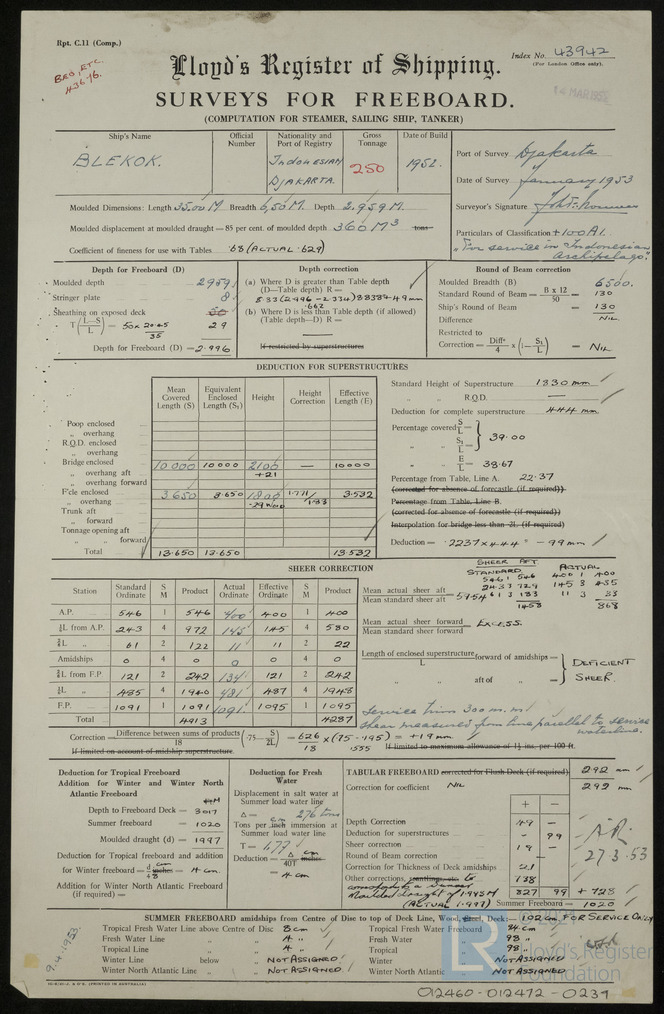 Rpt. C.11 (Comp.)
Index No. 43942
(For London Office only).
Lloyd's Register of Shipping.
SURVEYS FOR FREEBOARD.
(COMPUTATION FOR STEAMER, SAILING SHIP, TANKER)
Ship's Name
Official Number
Nationality and Port of Registry
Gross Tonnage
Date of Build
BLEKOK.
INDONESIAN
DJAKARTA.
250
1952.
Port of Survey Djakarta
Date of Survey January 1953
Surveyor's Signature
Particulars of Classification +100A1.
"For service in Indonesian Archipelago".
Moulded Dimensions: Length 35.00 M Breadth 6,50 M. Depth 2.959 M.
Moulded displacement at moulded draught — 85 per cent. of moulded depth 360 M³ tons
Coefficient of fineness for use with Tables .68 (ACTUAL .629)
Depth for Freeboard (D)
Moulded depth 2959
Stringer plate 8
Sheathing on exposed deck 50
T(L—S/L) = 50 x 20.45/35 29
Depth for Freeboard (D) = 2.996
Depth correction
(a) Where D is greater than Table depth
(D—Table depth) R =
8.33 (2.996 - 2.334) 88389 = 49 mm
.662
(b) Where D is less than Table depth (if allowed)
(Table depth—D) R =
If restricted by superstructures
Round of Beam correction
Moulded Breadth (B) 6500.
Standard Round of Beam = B x 12/50 = 130
Ship's Round of Beam = 130
Difference NIL
Restricted to
Correction = Diff/4 x (1 — S₁/L) = NIL
DEDUCTION FOR SUPERSTRUCTURES
Mean Covered Length (S)
Equivalent Enclosed Length (S₁)
Height
Height Correction
Effective Length (E)
Poop enclosed
„ overhang
R.Q.D. enclosed
„ overhang
Bridge enclosed 10.000 10000 2100 — 10000
„ overhang aft +21
„ overhang forward
F'cle enclosed 3.650 3.650 1800 1.771/1.83 3.532
„ overhang
Trunk aft
„ forward
Tonnage opening aft
„ „ forward
Total 13.650 13.650 13.532
Standard Height of Superstructure 1830 mm
„ „ R.Q.D. —
Deduction for complete superstructure 444 mm.
Percentage covered S/L =
„ „ S₁/L = 39.00
„ „ E/L = 38.67
Percentage from Table, Line A. 22.37
(corrected for absence of forecastle (if required))
Percentage from Table, Line B.
(corrected for absence of forecastle (if required))
Interpolation for bridge less than .2L (if required)
Deduction = .2237 x 444 = -99 mm
SHEER CORRECTION
Station
Standard Ordinate
S M
Product
Actual Ordinate
Effective Ordinate
S M
Product
A.P. 546 1 546 400 400 1 400
⅙L from A.P. 243 4 972 145 145 4 580
⅓L „ 61 2 122 11 11 2 22
Amidships 0 4 0 0 0 4 0
⅓L from F.P. 121 2 242 134 121 2 242
⅙L „ 485 4 1940 481 487 4 1948
F.P. 1091 1 1091 1091 1095 1 1095
Total 4913 4287
SHEER AFT
STANDARD ACTUAL
546 1 546 400 1 400
243 3 729 145 3 435
61 3 183 11 3 33
1458 868
Mean actual sheer aft
Mean standard sheer aft =
Mean actual sheer forward
Mean standard sheer forward = EXCESS.
Length of enclosed superstructure forward of amidships =
L
„ „ aft of „ =
DEFICIENT SHEER.
Service trim 300 m.m.
Sheer measured from line parallel to service waterline.
Correction = Difference between sums of products/18 (.75—S/2L) = 626/18 x (.75 - .195) = +19 mm.
.555
If limited on account of midship superstructure.
If limited to maximum allowance of 1½ ins. per 100 ft.
Deduction for Tropical Freeboard
Addition for Winter and Winter North Atlantic Freeboard
Depth to Freeboard Deck = 3017
Summer freeboard = 1020
Moulded draught (d) = 1997
Deduction for Tropical freeboard and addition
for Winter freeboard = d cm/48 inches = 4 cm.
Addition for Winter North Atlantic Freeboard
(if required) =
Deduction for Fresh Water
Displacement in salt water at Summer load water line
Δ = 276 tons
Tons per inch cm immersion at Summer load water line
T = 1.77
Deduction = Δ/40T inches cm
= 4 cm
TABULAR FREEBOARD corrected for Flush Deck (if required) 292 mm
Correction for coefficient NIL 292 mm
+ —
Depth Correction 49 -
Deduction for superstructures - 99
Sheer correction 19 -
Round of Beam correction
Correction for Thickness of Deck amidships 21
Other corrections, scantlings, etc. to 738
correspond to a Summer
Moulded draught of 1.998 M
(ACTUAL 1.997)
827 99 + 728
Summer Freeboard = 1020
27.3.53
SUMMER FREEBOARD amidships from Centre of Disc to top of Deck Line, Wood, Steel, Deck:— 102 cm FOR SERVICE ONLY
Tropical Fresh Water Line above Centre of Disc 8 cm
Fresh Water Line „ „ 4 „
Tropical Line „ „ 4 „
Winter Line below „ NOT ASSIGNED
Winter North Atlantic Line „ „ NOT ASSIGNED.
Tropical Fresh Water Freeboard 94 cm
Fresh Water „ 98 „
Tropical „ 98 „
Winter „ NOT ASSIGNED
Winter North Atlantic „ NOT ASSIGNED
9.4.1953.
LR
Lloyd's Register
Foundation
012460-012472-0239